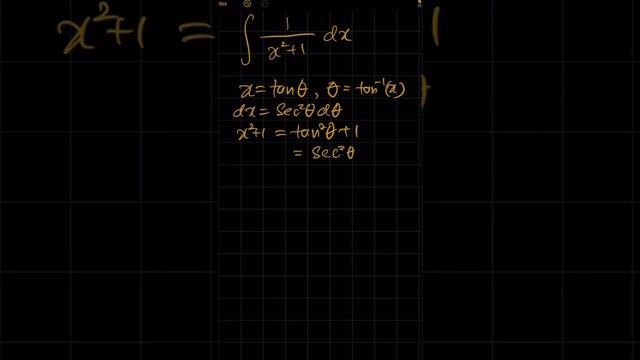 ∫ 1/(x²+1) dx
x = tanθ, θ = tan⁻¹(x)
dx = sec²θ dθ
x²+1 = tan²θ + 1
= sec²θ
x²+1 =
1